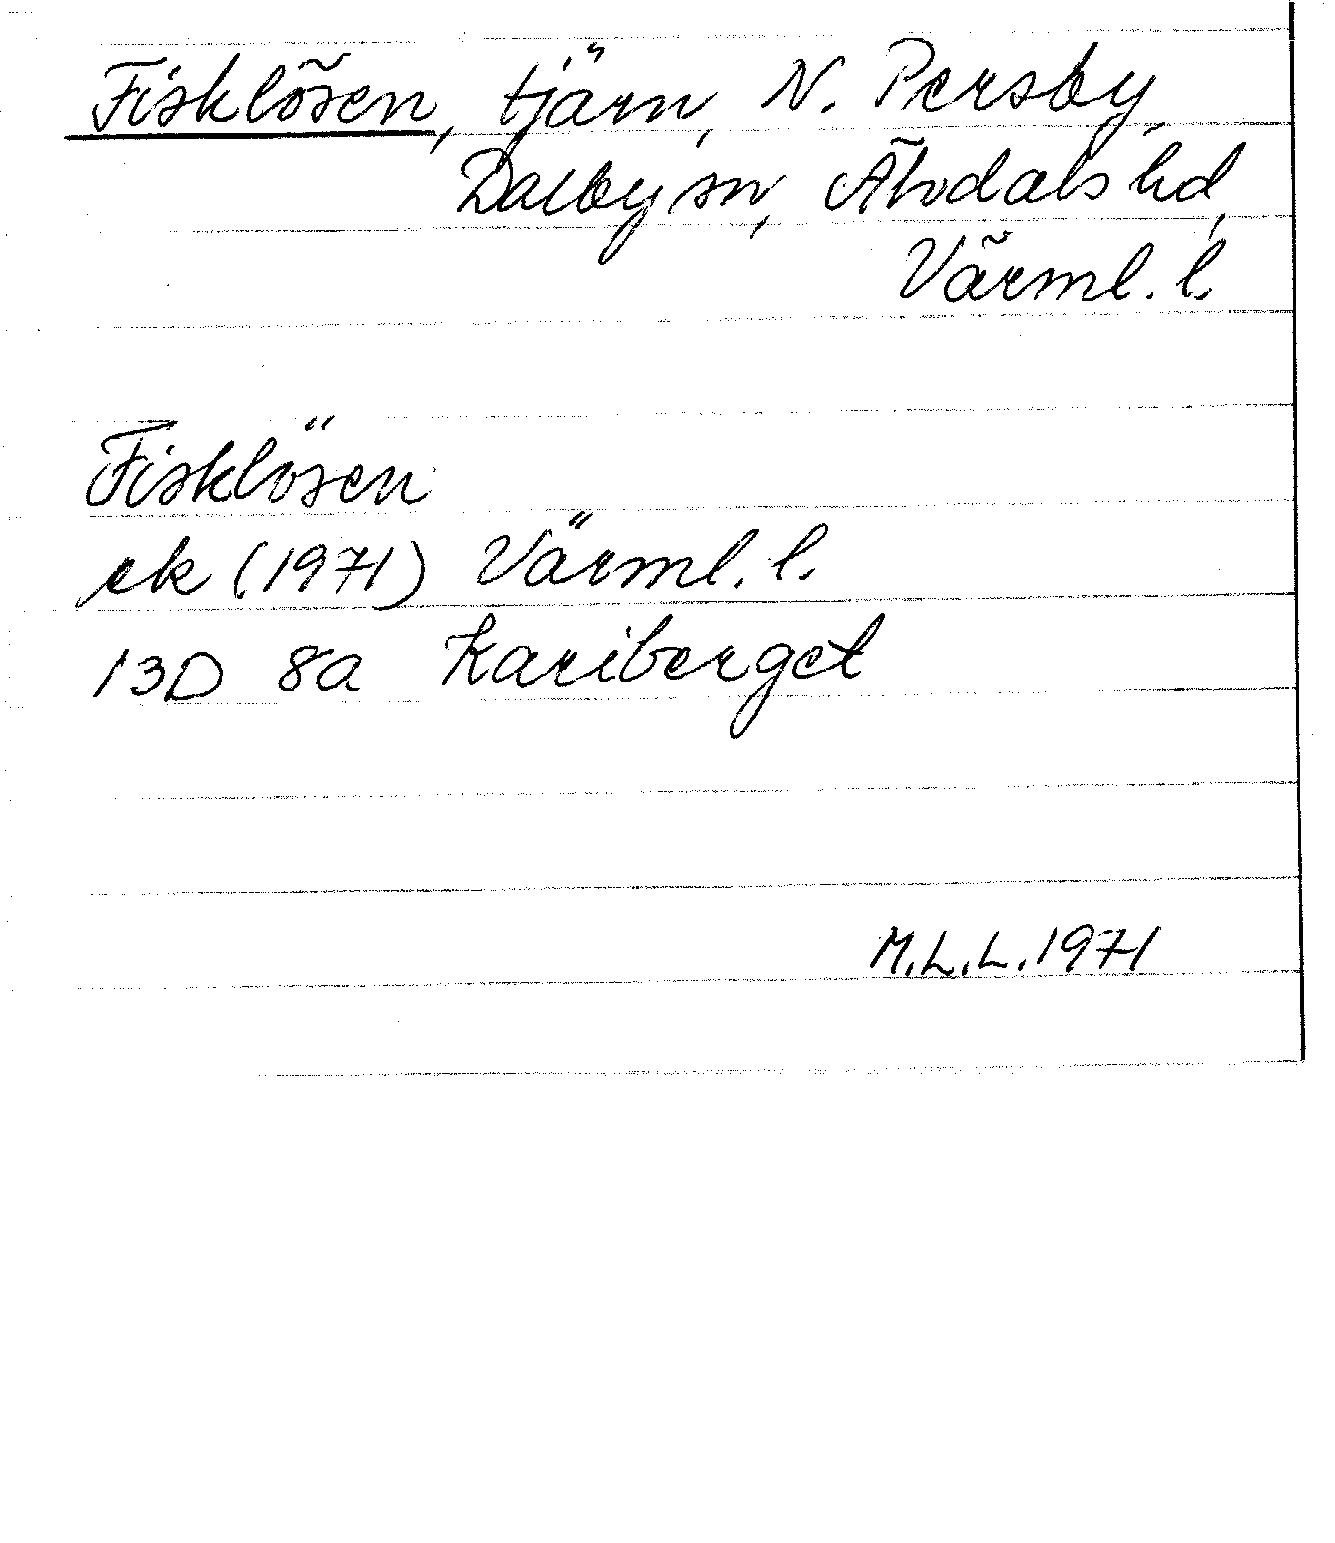 Fisklösen, tjärn, N. Persby,
Dalby sn, Älvdals hd,
Värml. l.
Fisklösen
ek (1971) Värml. l.
13D 8a Kariberget
M.L.L. 1971